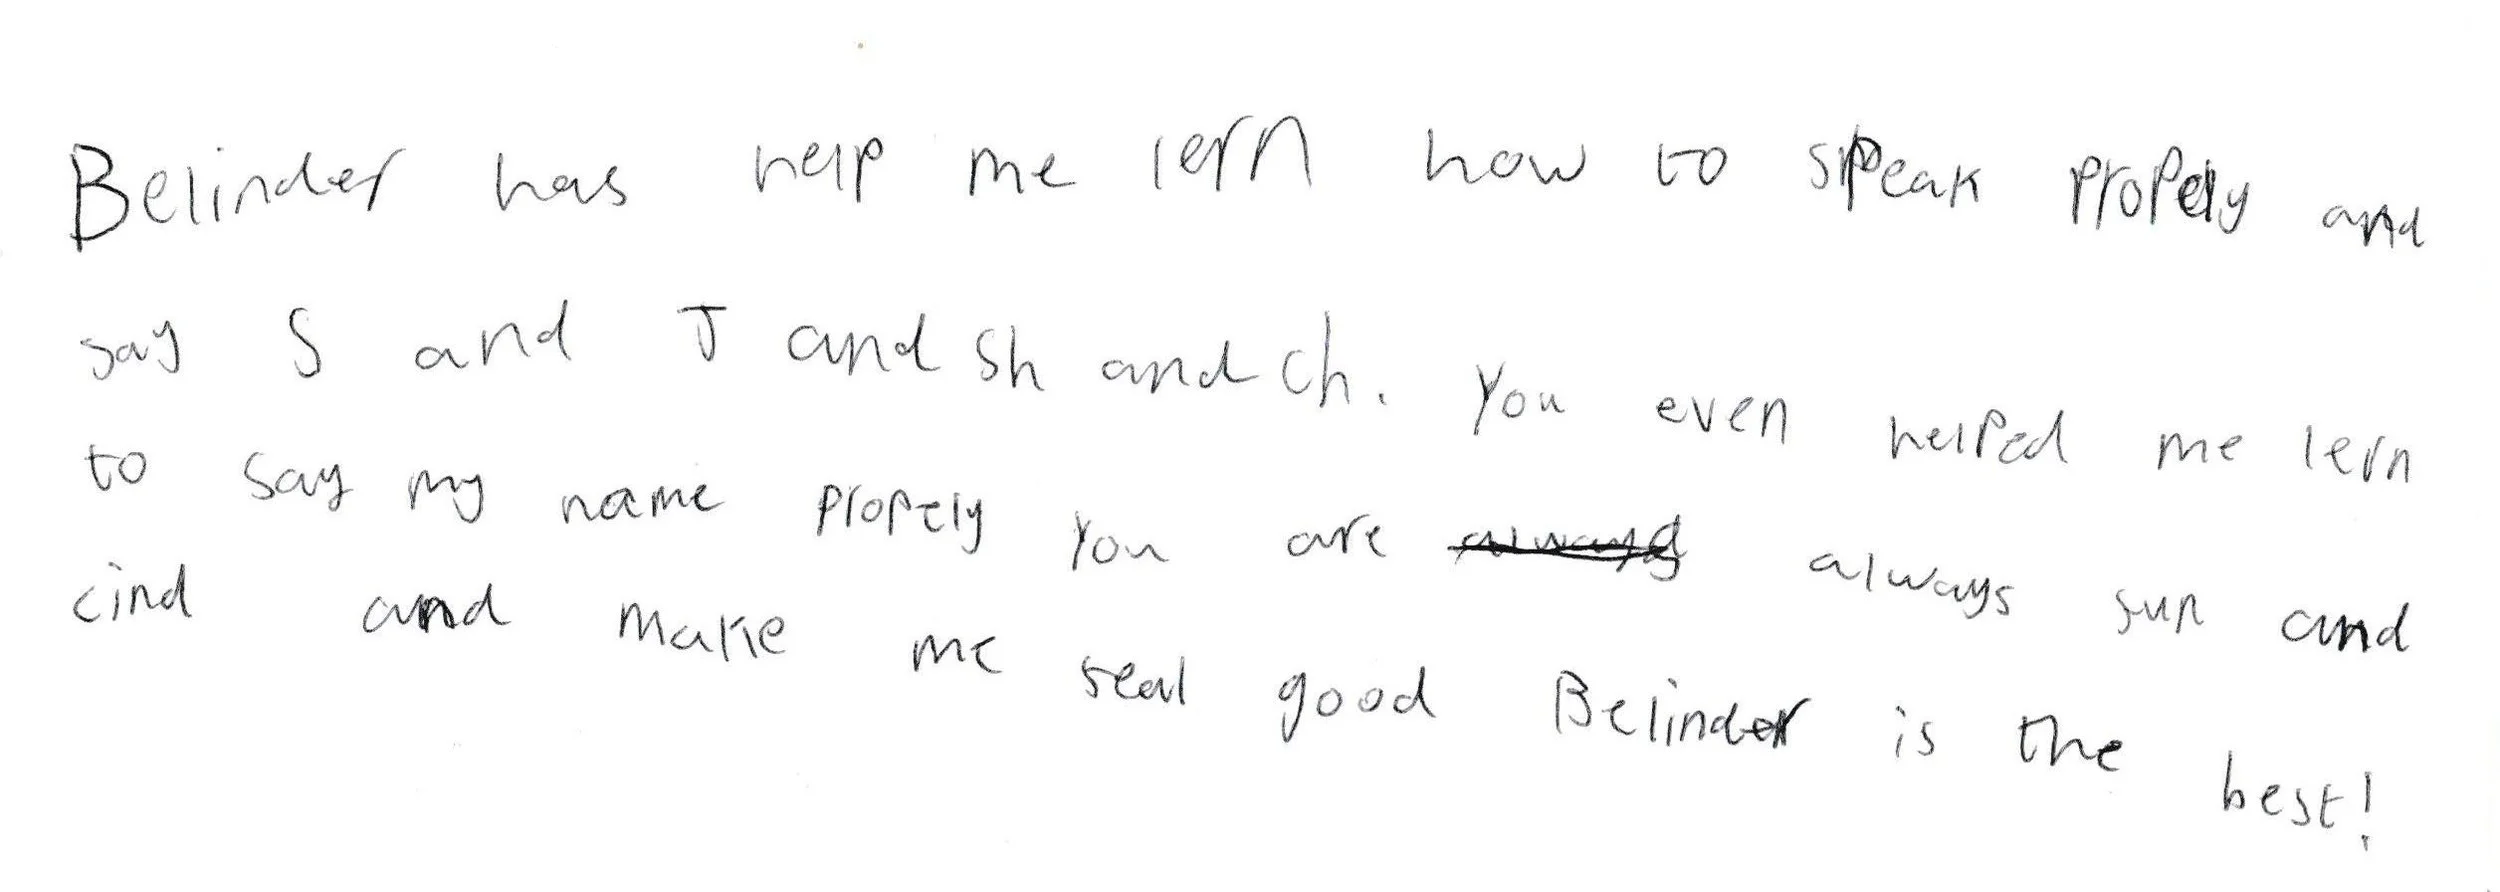 Belinder has help me lern how to speak propely and
say S and J and Sh and Ch. You even helped me lern
to say my name propely You are always always sun and
cind and make me seal good Belinder is the best!